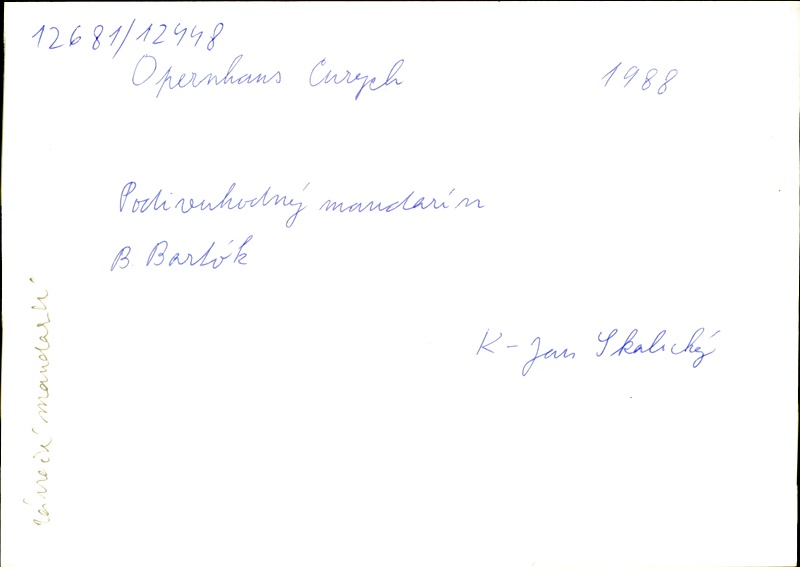 12681/12448
Opernhaus Curych 1988
Podivuhodný mandarín
B. Bartók
K - Jan Skalický